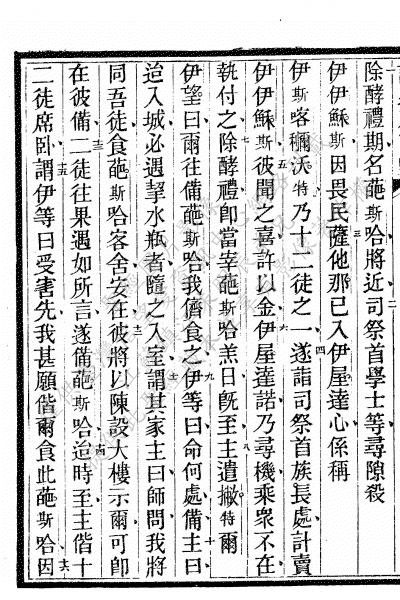 除酵禮期名葩斯哈將近司祭首學士等尋隙殺
伊伊穌斯因畏民薩他那已入伊屋達心係稱
伊斯喀穪沃特乃十二徒之一遂詣司祭首族長處計賣
伊伊穌斯彼聞之喜許以金伊屋達諾乃尋機乘衆不在
執付之除酵禮卽當宰葩斯哈羔日旣至主遣撇特爾
伊望曰爾往備葩斯哈我儕食之伊等曰命何處備主曰
迨入城必遇挈水瓶者隨之入室謂其家主曰師問我將
同吾徒食葩斯哈客舍安在彼將以陳設大樓示爾可卽
在彼備二徒往果遇如所言遂備葩斯哈迨時至主偕十
二徒席卧謂伊等曰受害先我甚願偕爾食此葩斯哈因